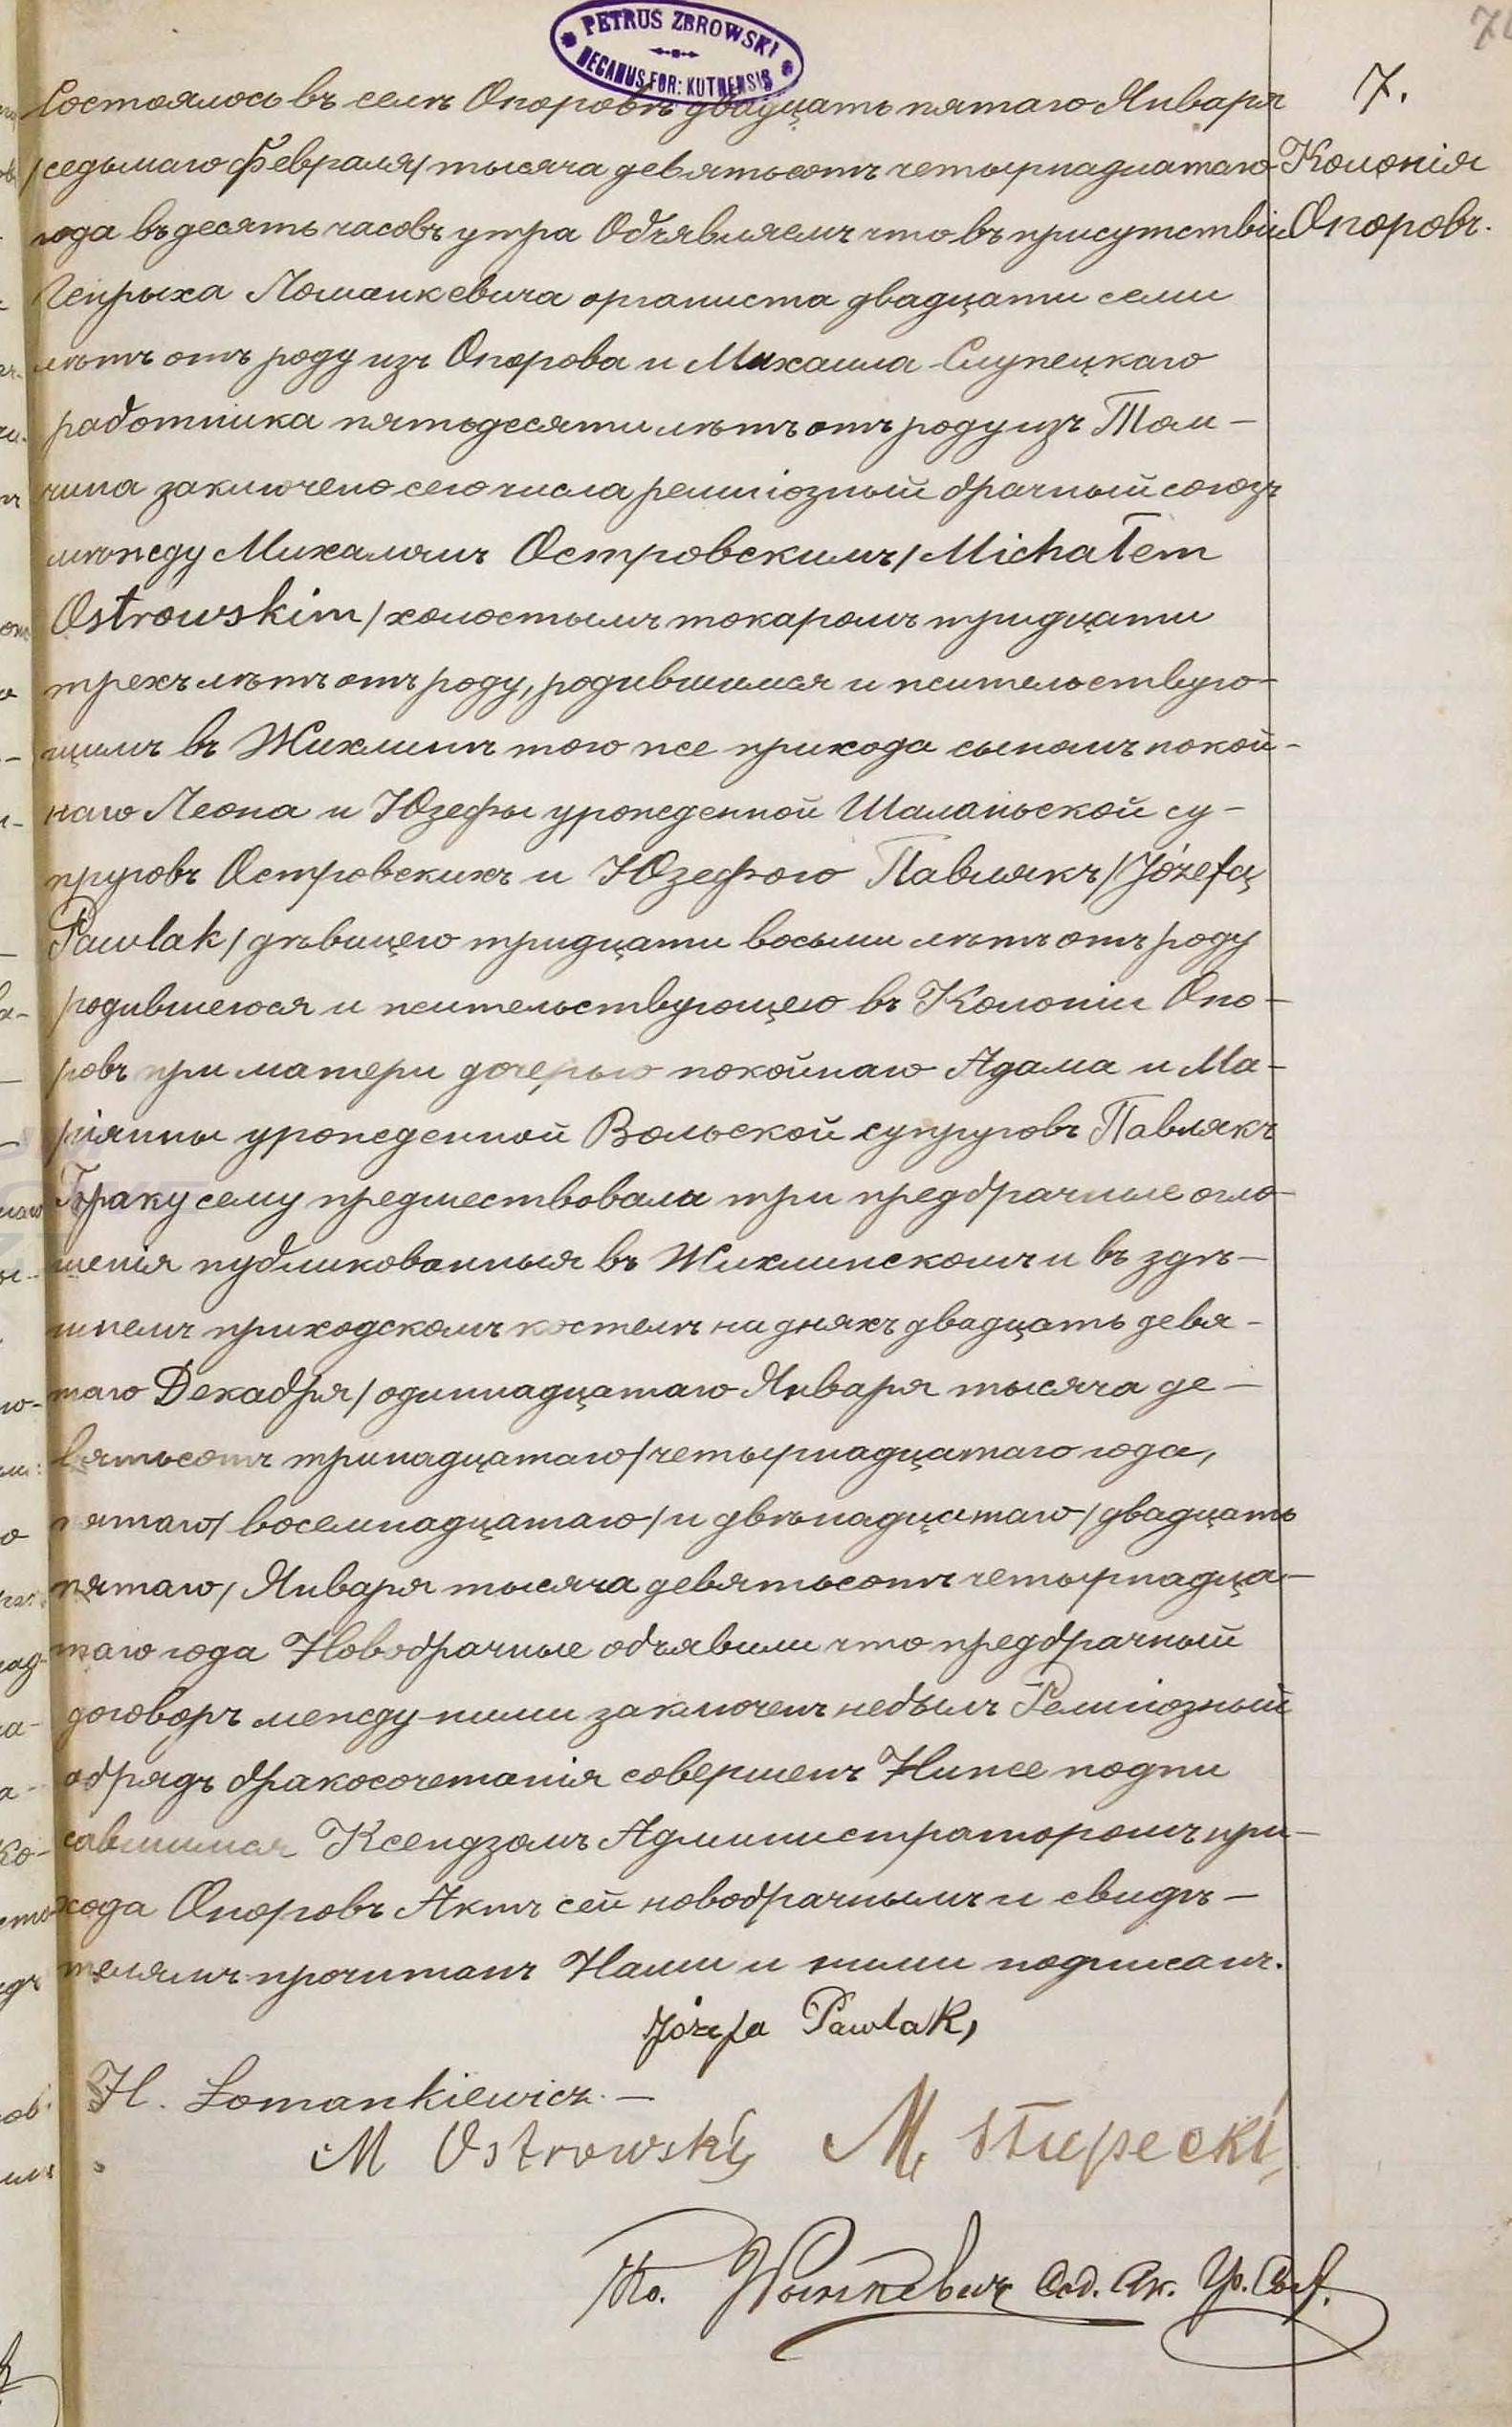 PETRUS ZBROWSKI
DECANUS FOR: KUTNENSIS
7.
Колонія
Опоровъ.
Состоялось въ селѣ Опоровѣ двадцать пятаго Января
/седьмаго Февраля/ тысяча девятьсотъ четырнадцатаго
года въ десять часовъ утра Объявляемъ что въ присутствіи
Генрыха Ломанкевича органиста двадцати семи
лѣтъ отъ роду изъ Опорова и Михаила Слупецкаго
работника пятьдесяти лѣтъ отъ роду изъ Том-
чина заключено сего числа религіозный брачный союзъ
мѣжду Михаломъ Островскимъ /Michałem
Ostrowskim/ холостымъ токаромъ тридцати
трехъ лѣтъ отъ роду, родившимся и жительствую-
щимъ въ Жихлинѣ того же прихода сыномъ покой-
наго Леона и Юзефы урожденной Шаланьской су-
пруговъ Островскихъ и Юзефою Павлякъ /Józefą
Pawlak/ дѣвицею тридцати восьми лѣтъ отъ роду
родившеюся и жительствующею въ Колоніи Опо-
ровъ при матери дочерью покойнаго Адама и Ма-
ріянны урожденной Вольской супруговъ Павлякъ
Браку сему предшествовала три предбрачные огло-
шенія публикованныя въ Жихлинскомъ и въ здѣ-
шнемъ приходскомъ костелѣ на дняхъ двадцать девя-
таго Декабря /одиннадцатаго Января тысяча де-
вятьсотъ тринадцатаго/четырнадцатаго года,
пятаго/ восемнадцатаго/ и двѣнадцатаго /двадцать
пятаго/ Января тысяча девятьсотъ четырнадца-
таго года Новобрачные объявили что предбрачный
договоръ между ними заключенъ небылъ Религіозный
обрядъ бракосочетанія совершенъ Ниже подпи
савшимся Ксендзомъ Администраторомъ при-
хода Опоровъ Актъ сей новобрачнымъ и свидѣ-
телямъ прочитанъ Нами и ними подписанъ.
Józefa Pawlak,
H. Lomankiewicz. -
M Ostrowski, M, Słupecki,
Сод. Ак. Гр. Сост.